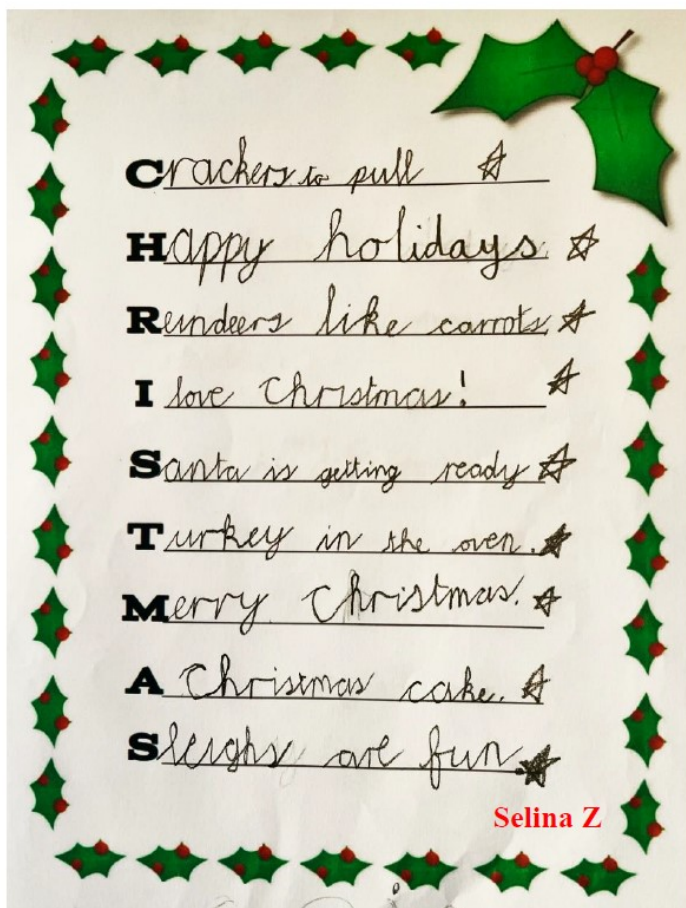 Crackers to pull
Happy holidays.
Reindeers like carrots
I love Christmas!
Santa is getting ready
Turkey in the oven.
Merry Christmas.
A Christmas cake.
Sleighs are fun.
Selina Z